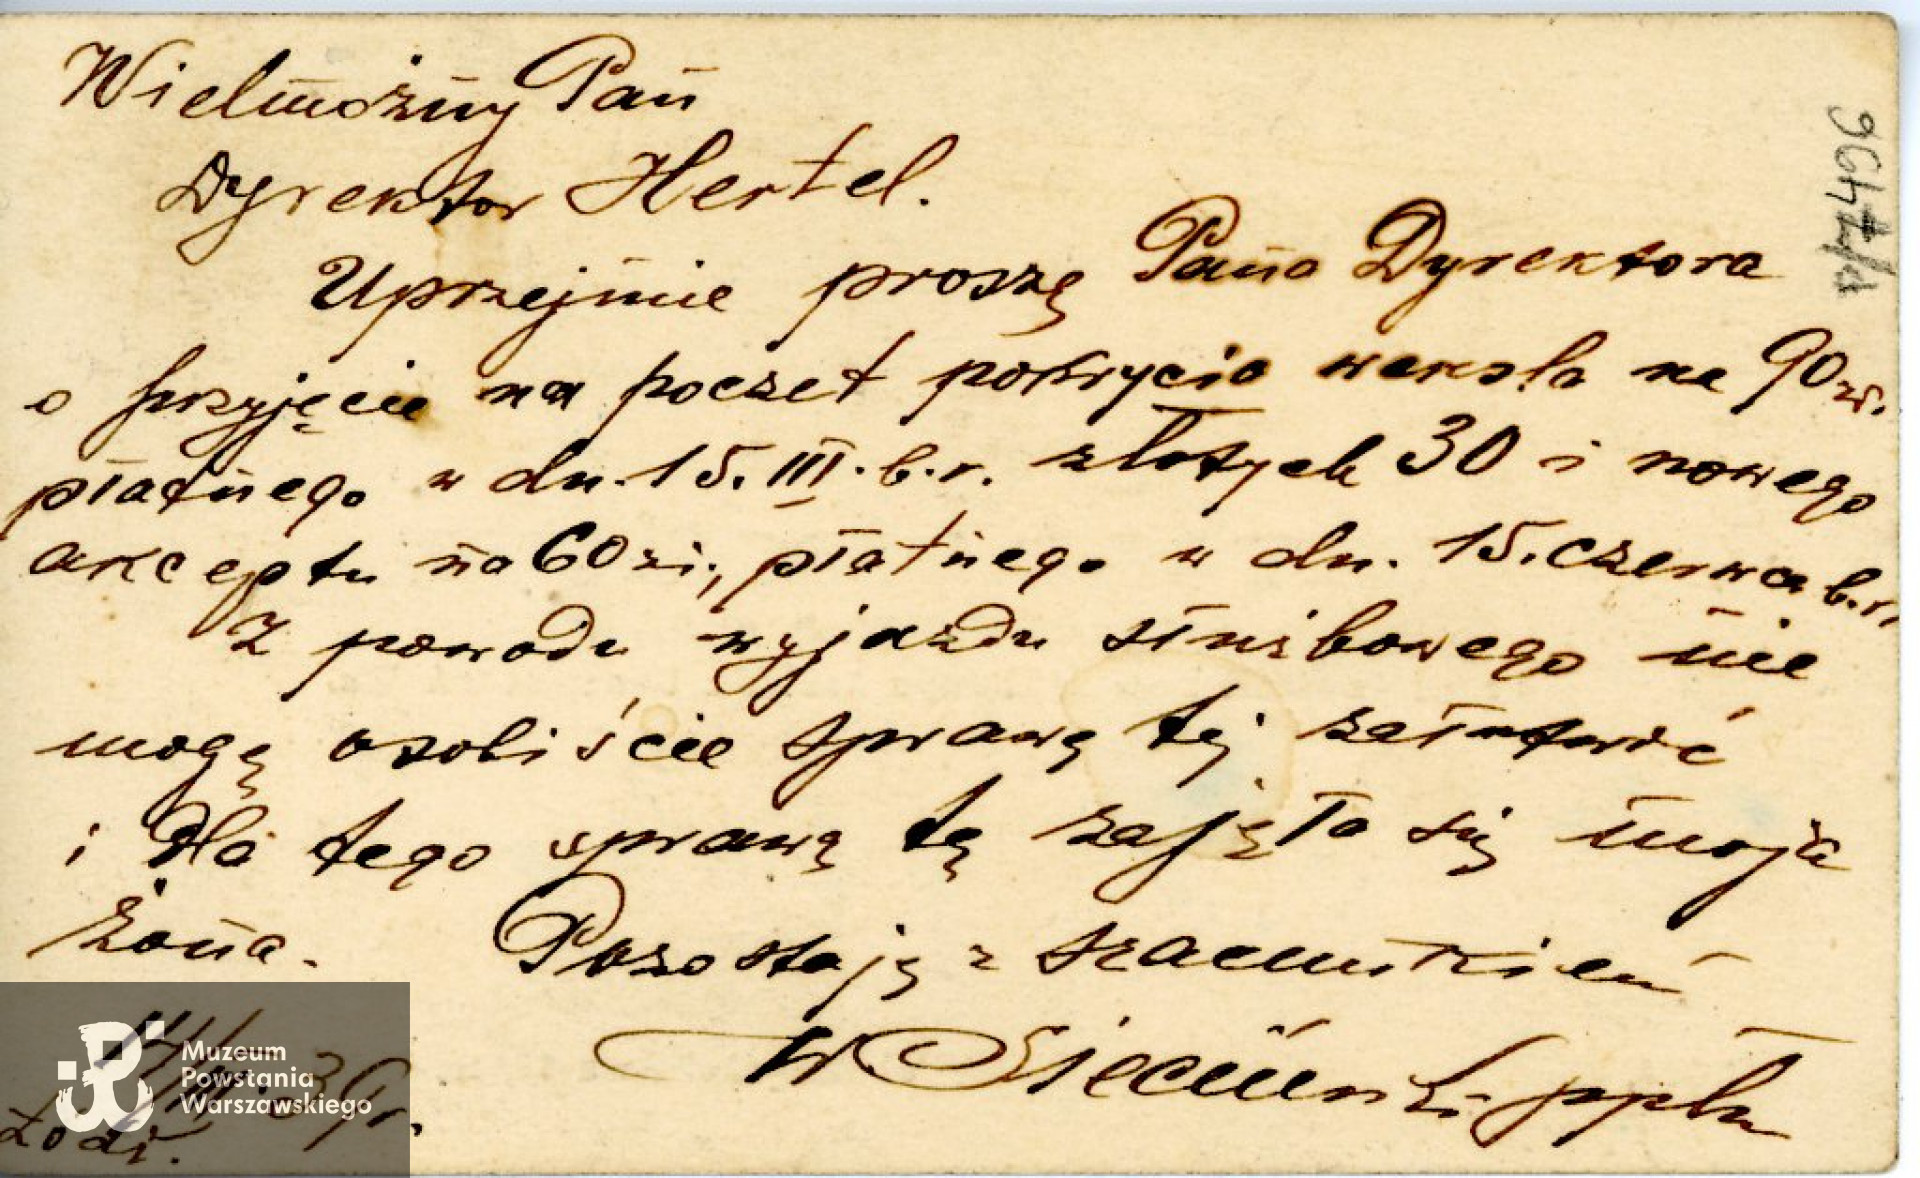 Wielmożny Pan
Dyrektor Hertel.
Uprzejmie proszę Pana Dyrektora
o przyjęcie na poczet pokrycia weksla na 90 zł.
płatnego w dn. 15. III. b.r. złotych 30 i nowego
akceptu na 60 zł., płatnego w dn. 15. czerwca b.r.
Z powodu wyjazdu służbowego nie
mogę osobiście sprawę tej załatwić
i dla tego sprawą tą zajęła się moja
żona. Pozostaję z szacunkiem
W ppłk
Łódź.
Muzeum
Powstania
Warszawskiego